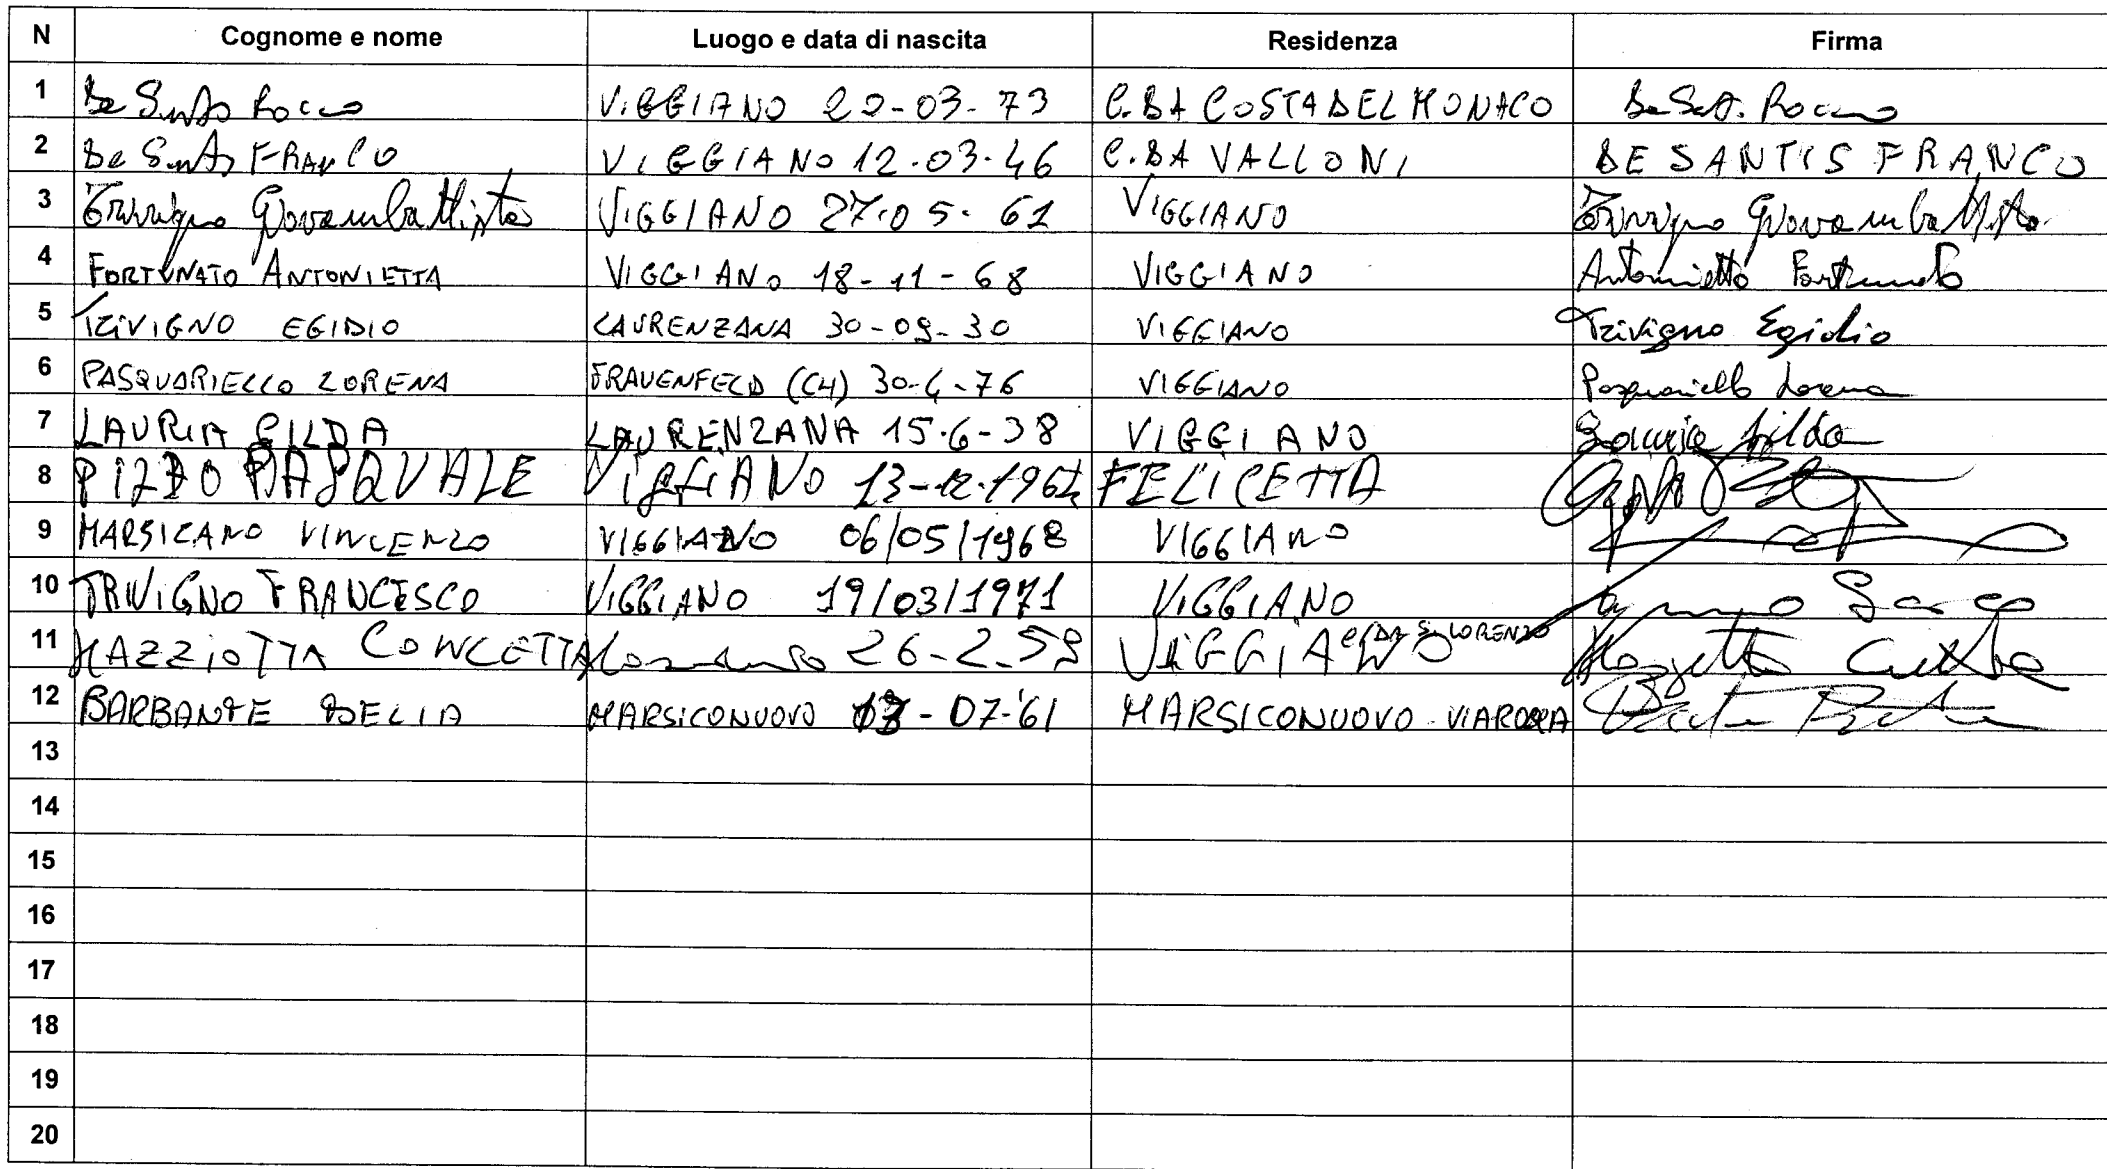 N Cognome e nome Luogo e data di nascita Residenza Firma
1 De Santis Rocco VIGGIANO 20-03-73 C.DA COSTA DEL MONACO De Sant. Rocco
2 De Santis FRANCO VIGGIANO 12-03-46 C.DA VALLONI DE SANTIS FRANCO
3 Trivigno Giovambattista VIGGIANO 27-05-61 VIGGIANO Trivigno Giovambattista
4 FORTUNATO ANTONIETTA VIGGIANO 18-11-68 VIGGIANO Antonietta Fortunato
5 TRIVIGNO EGIDIO LAURENZANA 30-09-30 VIGGIANO Trivigno Egidio
6 PASQUARIELLO LORENA FRAUENFELD (CH) 30-4-76 VIGGIANO Pasquariello Lorena
7 LAURIA GILDA LAURENZANA 15-6-38 VIGGIANO Lauria Gilda
8 PIZZO PASQUALE VIGGIANO 13-12-1964 FELICETTA
9 MARSICANO VINCENZO VIGGIANO 06/05/1968 VIGGIANO
10 TRIVIGNO FRANCESCO VIGGIANO 19/03/1971 VIGGIANO
11 MAZZIOTTA CONCETTA 26-2-59 VIGGIANO C/DA S. LORENZO
12 BARBANTE DELIA MARSICONUOVO 13-07-'61 MARSICONUOVO VIA ROMA
13
14
15
16
17
18
19
20